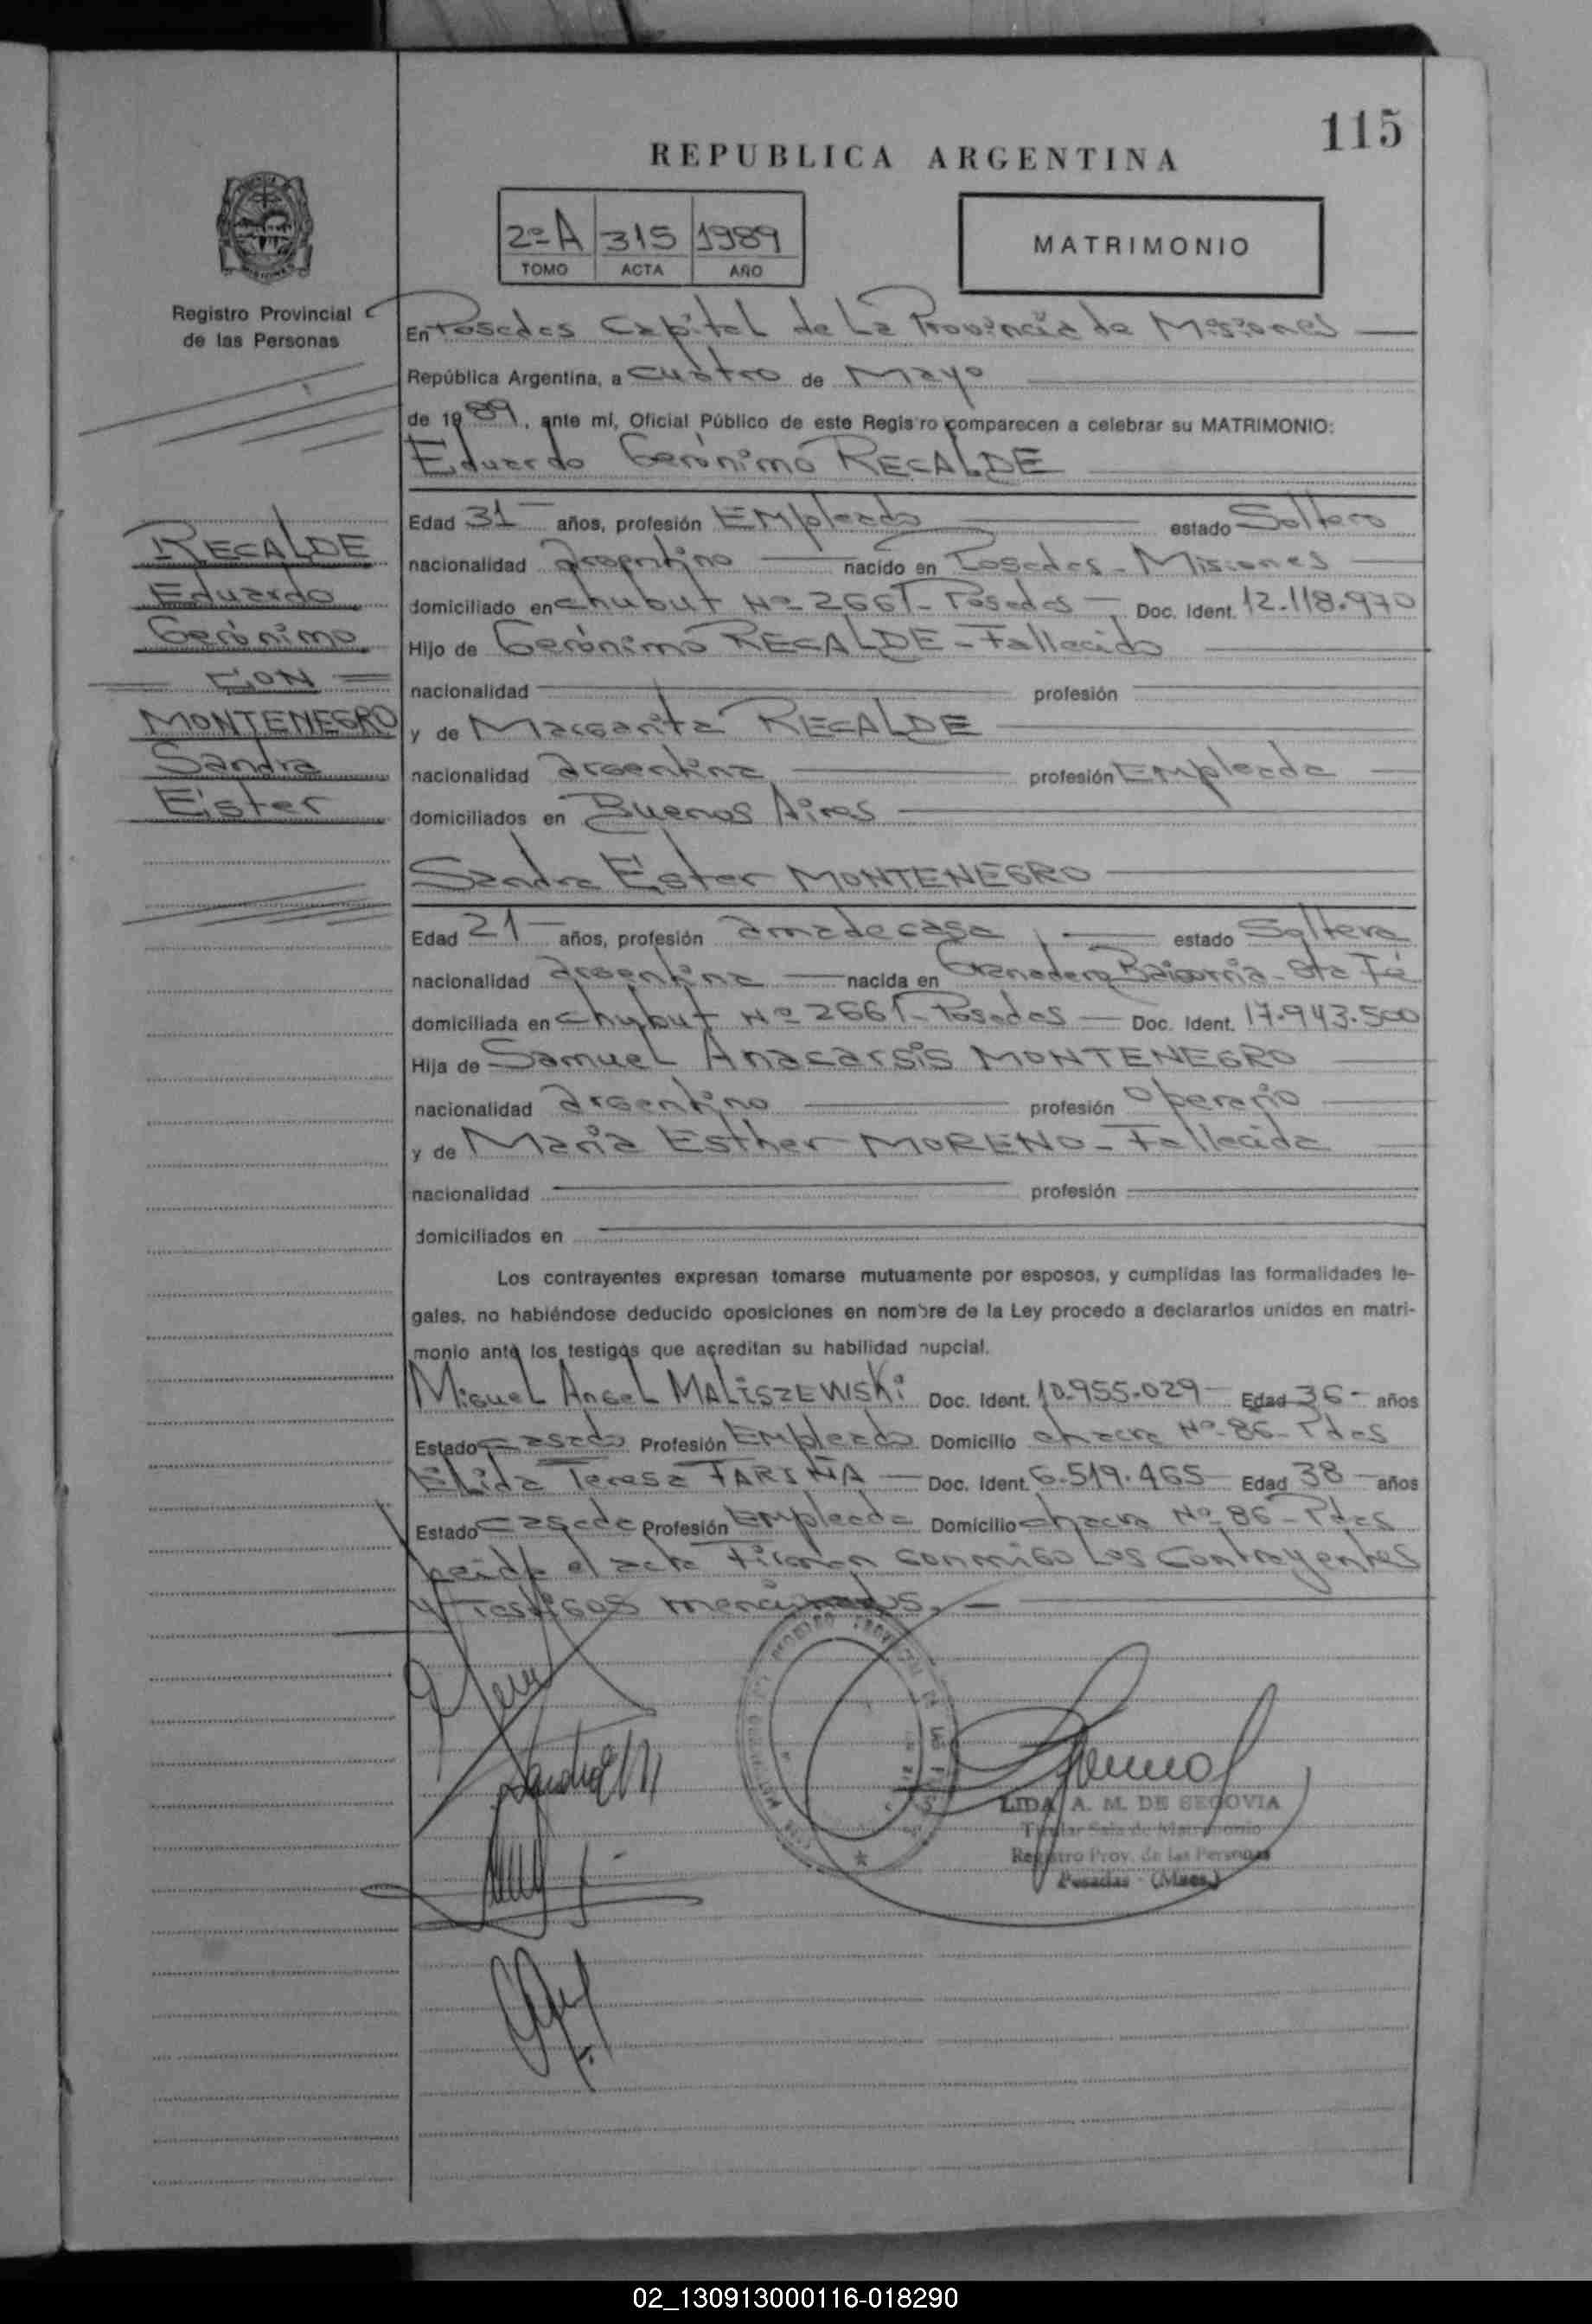 115
REPUBLICA ARGENTINA
2º A 315 1989
TOMO ACTA AÑO
MATRIMONIO
Registro Provincial
de las Personas
En Posadas Capital de La Provincia de Misiones
República Argentina, a cuatro de Mayo
de 1989, ante mi, Oficial Público de este Registro comparecen a celebrar su MATRIMONIO:
Eduardo Gerónimo RECALDE
RECALDE
Eduardo
Gerónimo
CON
MONTENEGRO
Sandra
Ester
Edad 31 años, profesión Empleado estado Soltero
nacionalidad argentino nacido en Posadas - Misiones
domiciliado en chubut Nº 2661 - Posadas Doc. Ident. 12.118.970
Hijo de Gerónimo RECALDE - Fallecido
nacionalidad profesión
y de Margarita RECALDE
nacionalidad argentina profesión Empleada
domiciliados en Buenos Aires
Sandra Ester MONTENEGRO
Edad 21 años, profesión ama de casa estado Soltera
nacionalidad argentina nacida en Granadero Baigorria - Sta Fé
domiciliada en chubut Nº 2661 - Posadas Doc. Ident. 17.943.500
Hija de Samuel Anacarsis MONTENEGRO
nacionalidad argentino profesión Operario
y de María Esther MORENO - Fallecida
nacionalidad profesión
domiciliados en
Los contrayentes expresan tomarse mutuamente por esposos, y cumplidas las formalidades le-
gales, no habiéndose deducido oposiciones en nombre de la Ley procedo a declararlos unidos en matri-
monio ante los testigos que acreditan su habilidad nupcial.
Miguel Angel MALISZEWSKI Doc. Ident. 10.955.029 Edad 36 - años
Estado casado Profesión Empleado Domicilio chacra Nº 86 - Pdas
Elida Teresa FARIÑA Doc. Ident. 6.519.465 Edad 38 años
Estado casada Profesión Empleada Domicilio chacra Nº 86 - Pdas
Leida el acta Firman conmigo Los Contrayentes
y Testigos mencionados.-
LIDA A. M. DE SEGOVIA
Titular Sala de Matrimonio
Registro Prov. de las Personas
Posadas - (Mnes.)
02_130913000116-018290